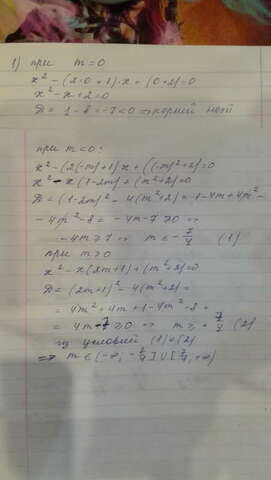 1) при m=0
x²-(2·0+1)·x+(0+2)=0
x²-x+2=0
D=1-8=-7<0 ⇒ корней нет
при m<0:
x²-(2(-m)+1)x+((-m)²+2)=0
x²-x(1-2m)+(m²+2)=0
D=(1-2m)²-4(m²+2)=1-4m+4m²-
-4m²-8=-4m-7≥0 ⇒
-4m≥7 ⇒ m≤-7/4 (1)
при m>0
x²-x(2m+1)+(m²+2)=0
D=(2m+1)²-4(m²+2)=
=4m²+4m+1-4m²-8=
=4m-7≥0 ⇒ m≥+7/4 (2)
из условий (1) и (2)
⇒ m∈(-∞,-7/4]∪[7/4,+∞)